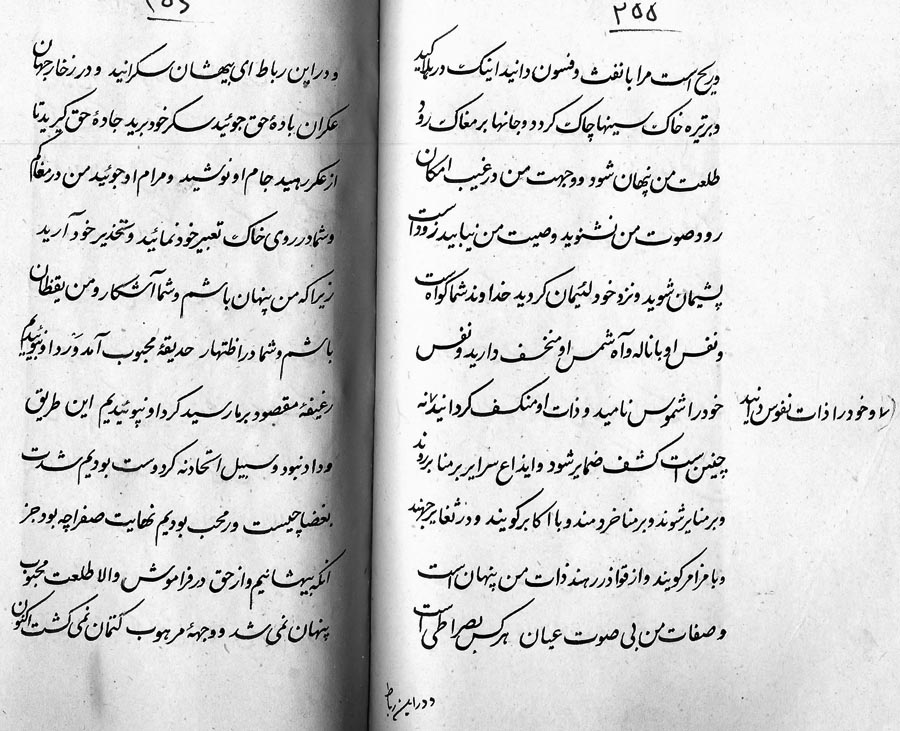 ٢٥٥
و ریح است مرا با نفث و فسون دانید اینک در بلا کید
و بر تیره خاک سینها چاک کردد و جانها بر مغاک رود
طلعت من پنهان شود و وجهت من در غیب امکان
رود صوت من نشنوید وصیت من نیابید زود است
پشیمان شوید و نزد خود لئیمان کردید خداوند شما کواه است
و نفس او با ناله و آه شمس او منخسف دارید و نفس
خود را شموس نامید و ذات او منکسف کردانید نه
و خود را ذات نفوس دانید
چنین است کشف ضمایر شود و ایذاع سرایر بر منا بروند
و بر منابر شوند و بر منا خرد مند و با اکابر کویند و در تغایر جوند
و با مزامر کویند و از قواذر رهند ذات من پنهان است
و صفات من بی صوت عیان هر کس بصراطی است
و در این رباط
و در این رباط ای بیهشان سکرانید و در زخار جهان
عکران باده حق جوئید سکر خود برید جاده حق کیرید تا
از عکر رهید جام او نوشید و مرام او جوئید من در مغاکم
و شما در روی خاک تعبیر خود نمائید و تحذیر خود آرید
زیرا که من پنهان باشم و شما آشکار و من یقظان
باشم و شما در اظهار حدیقهٔ محبوب آمد وَرد او نبوئیدیم
رغیفهٔ مقصود بر ما رسید کرد او نپوئیدیم این طریق
وداد نبود و سبیل اتحاد نه کر دوست بودیم شدت
بغضا چیست ور محب بودیم نهایت صفرا چه بود جز
آنکه بیهشانیم و از حق در فراموش والا طلعت محبوب
پنهان نمی شد و وجههٔ مرهوب کتمان نمی کشت اکنون